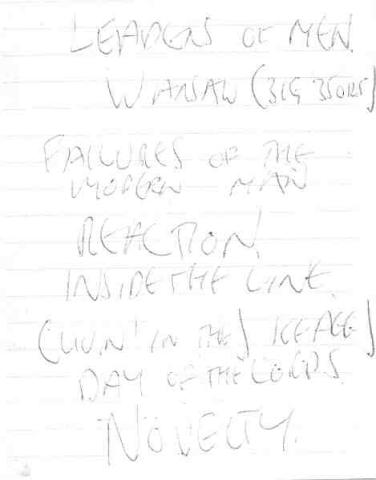 LEADERS OF MEN.
WARSAW (31G
FAILURES OF THE
MODERN MAN
REACTION.
INSIDE THE LINE.
(LIVIN' IN THE) ICE AGE)
DAY OF THE LORDS.
NOVELTY.